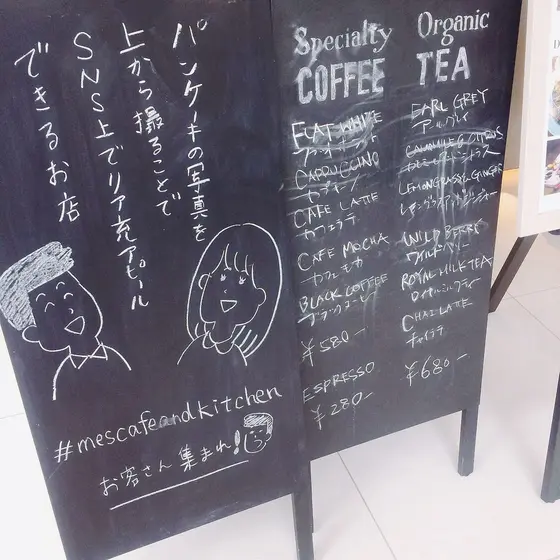 パンケーキの写真を
上から撮ることで
SNS上でリア充アピール
できるお店
#mescafeandkitchen
お客さん集まれ!
Specialty
COFFEE
FLAT WHITE
フラットホワイト
CAPPUCCINO
カプチーノ
CAFE LATTE
カフェラテ
CAFE MOCHA
カフェモカ
BLACK COFFEE
ブラックコーヒー
¥580-
ESPRESSO
¥280-
Organic
TEA
EARL GREY
アールグレイ
CAMOMILE CITRUS
カモミールシトラス
LEMONGRASS & GINGER
レモングラスアンドジンジャー
WILD BERRY
ワイルドベリー
ROYAL MILK TEA
ロイヤルミルクティー
CHAI LATTE
チャイラテ
¥680-